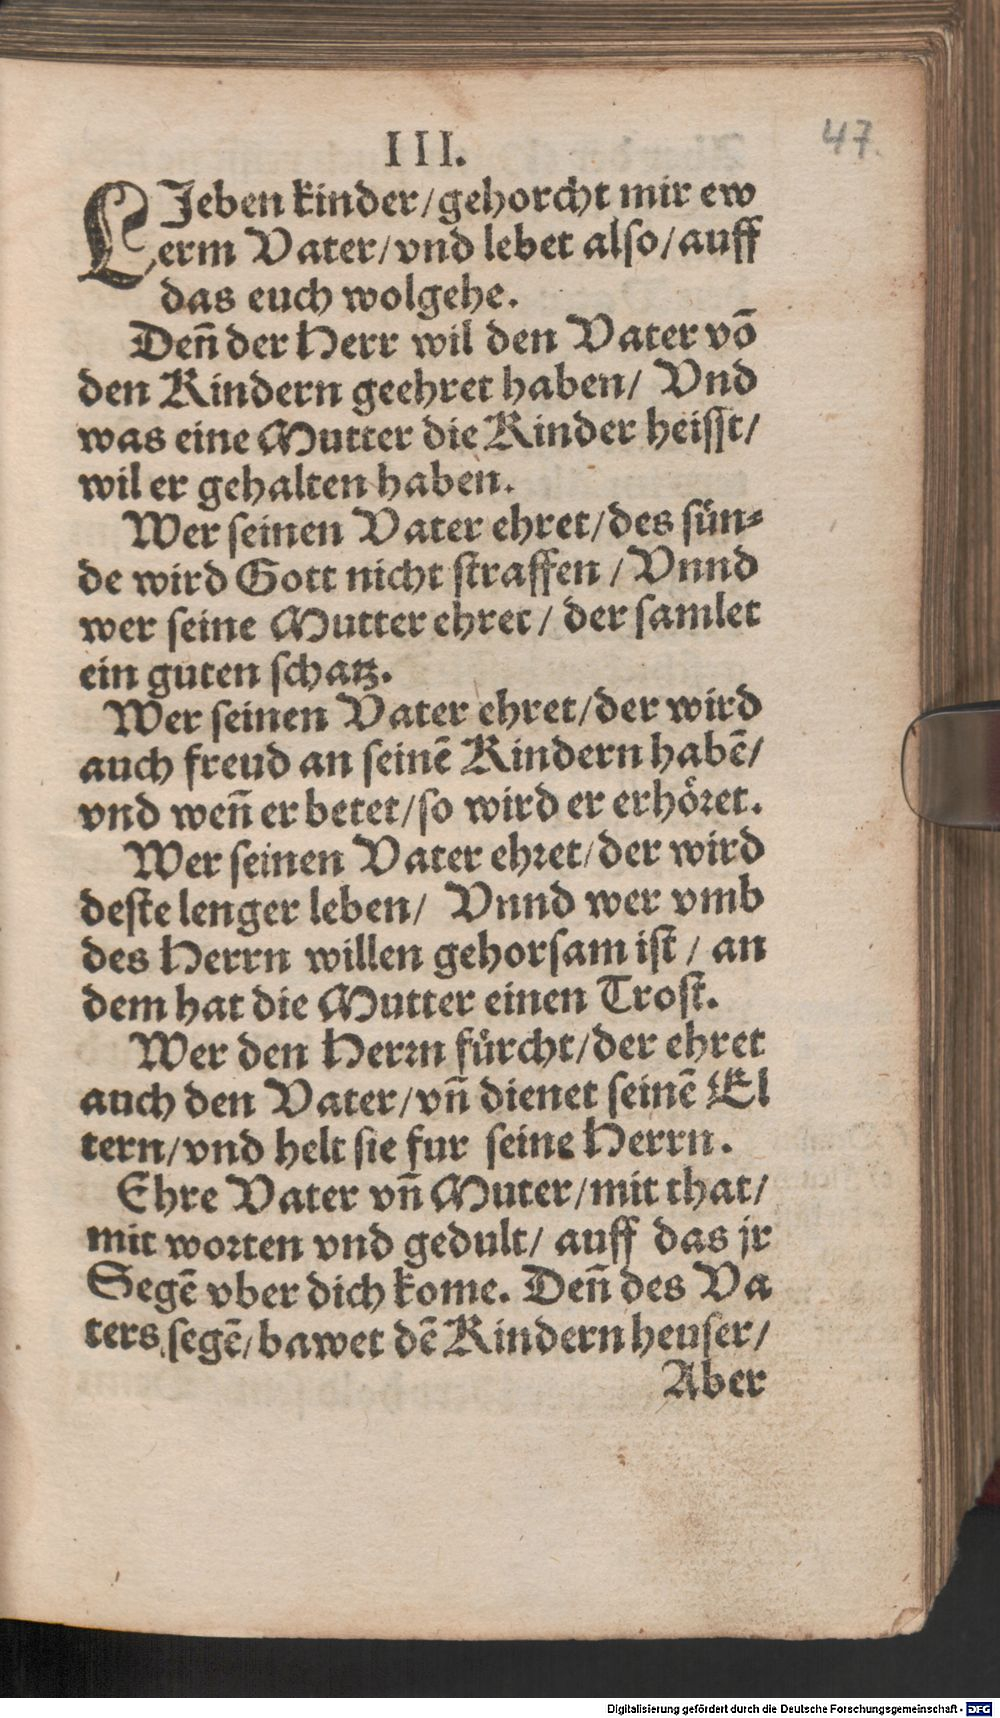 III.
47.
LJeben kinder/gehorcht mir ew
erm Vater/vnd lebet also/auff
das euch wolgehe.
Deñ der Herr wil den Vater võ
den Kindern geehret haben/ Vnd
was eine Mutter die Kinder heisst/
wil er gehalten haben.
Wer seinen Vater ehret/des sün⸗
de wird Gott nicht straffen /Vnnd
wer seine Mutter ehret/ der samlet
ein guten schatz.
Wer seinen Vater ehret/der wird
auch freud an seinẽ Kindern habẽ/
vnd weñ er betet/so wird er erhöret.
Wer seinen Vater ehret/der wird
deste lenger leben/ Vnnd wer vmb
des Herrn willen gehorsam ist / an
dem hat die Mutter einen Trost.
Wer den Herrn fürcht/der ehret
auch den Vater/vñ dienet seinẽ El
tern/vnd helt sie fur seine Herrn.
Ehre Vater vñ Muter/mit that/
mit worten vnd gedult/ auff das jr
Segẽ vber dich kome. Deñ des Va
ters segẽ/bawet dẽ Kindern heuser/
Aber
Digitalisierung gefördert durch die Deutsche Forschungsgemeinschaft - DFG